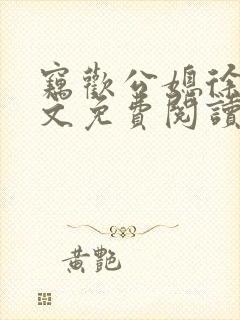 竊歡公媳徐
文免費閱讀
黄艷